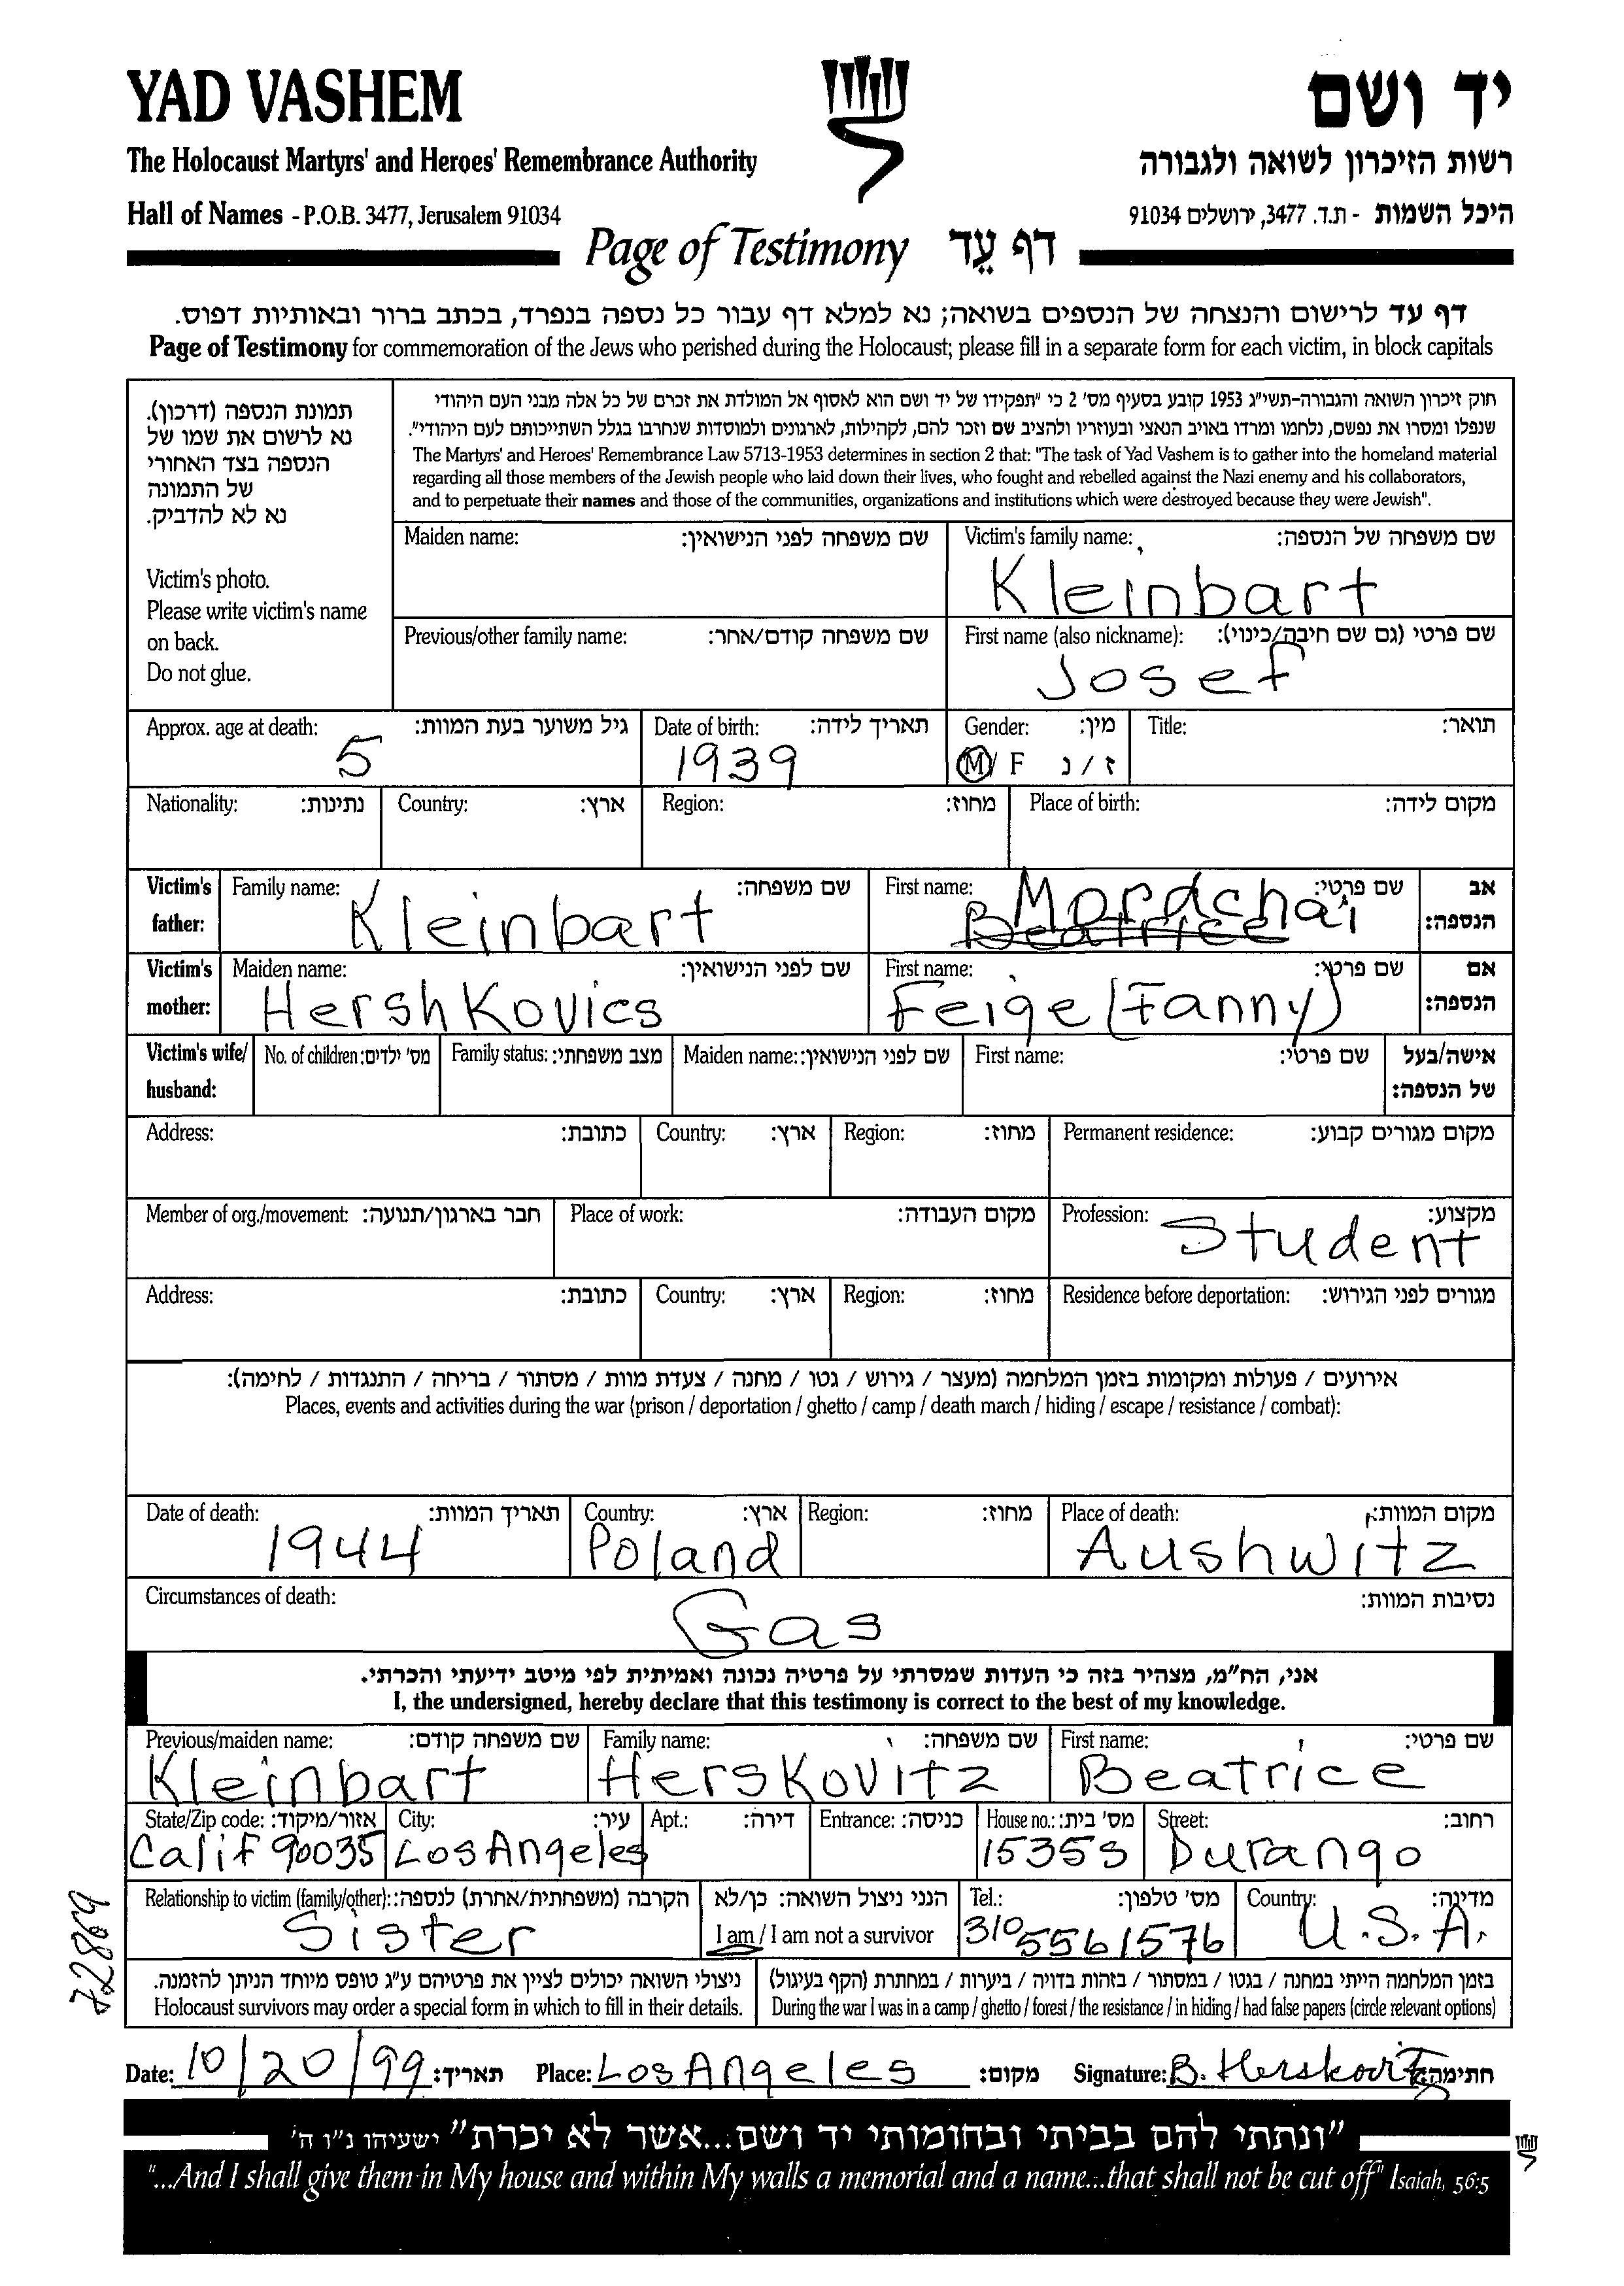 YAD VASHEM
יד ושם
The Holocaust Martyrs' and Heroes' Remembrance Authority
רשות הזיכרון לשואה ולגבורה
Hall of Names - P.O.B. 3477, Jerusalem 91034
היכל השמות - ת.ד. 3477, ירושלים 91034
Page of Testimony דף עֵד
דף עד לרישום והנצחה של הנספים בשואה; נא למלא דף עבור כל נספה בנפרד, בכתב ברור ובאותיות דפוס.
Page of Testimony for commemoration of the Jews who perished during the Holocaust; please fill in a separate form for each victim, in block capitals
תמונת הנספה (דרכון).
נא לרשום את שמו של
הנספה בצד האחורי
של התמונה
נא לא להדביק.
Victim's photo.
Please write victim's name
on back.
Do not glue.
חוק זיכרון השואה והגבורה-תשי"ג 1953 קובע בסעיף מס' 2 כי "תפקידו של יד ושם הוא לאסוף אל המולדת את זכרם של כל אלה מבני העם היהודי
שנפלו ומסרו את נפשם, נלחמו ומרדו באויב הנאצי ובעוזריו ולהציב שם וזכר להם, לקהילות, לארגונים ולמוסדות שנחרבו בגלל השתייכותם לעם היהודי".
The Martyrs' and Heroes' Remembrance Law 5713-1953 determines in section 2 that: "The task of Yad Vashem is to gather into the homeland material
regarding all those members of the Jewish people who laid down their lives, who fought and rebelled against the Nazi enemy and his collaborators,
and to perpetuate their names and those of the communities, organizations and institutions which were destroyed because they were Jewish".
Maiden name: שם משפחה לפני הנישואין:
Victim's family name: שם משפחה של הנספה:
Kleinbart
Previous/other family name: שם משפחה קודם/אחר:
First name (also nickname): שם פרטי (גם שם חיבה/כינוי):
Josef
Approx. age at death: גיל משוער בעת המוות:
5
Date of birth: תאריך לידה:
1939
Gender: מין:
M/ F ז / נ
Title: תואר:
Nationality: נתינות:
Country: ארץ:
Region: מחוז:
Place of birth: מקום לידה:
Victim's father:
Family name: שם משפחה:
Kleinbart
First name: שם פרטי:
Mordchai
Beatrice
אב הנספה:
Victim's mother:
Maiden name: שם לפני הנישואין:
Hershkovics
First name: שם פרטי:
Feige (Fanny)
אם הנספה:
Victim's wife/ husband:
No. of children: מס' ילדים:
Family status: מצב משפחתי:
Maiden name: שם לפני הנישואין:
First name: שם פרטי:
אישה/בעל של הנספה:
Address: כתובת:
Country: ארץ:
Region: מחוז:
Permanent residence: מקום מגורים קבוע:
Member of org./movement: חבר בארגון/תנועה:
Place of work: מקום העבודה:
Profession: מקצוע:
Student
Address: כתובת:
Country: ארץ:
Region: מחוז:
Residence before deportation: מגורים לפני הגירוש:
אירועים / פעולות ומקומות בזמן המלחמה (מעצר / גירוש / גטו / מחנה / צעדת מוות / מסתור / בריחה / התנגדות / לחימה):
Places, events and activities during the war (prison / deportation / ghetto / camp / death march / hiding / escape / resistance / combat):
Date of death: תאריך המוות:
1944
Country: ארץ:
Poland
Region: מחוז:
Place of death: מקום המוות:
Aushwitz
Circumstances of death: נסיבות המוות:
Gas
אני, הח"מ, מצהיר בזה כי העדות שמסרתי על פרטיה נכונה ואמיתית לפי מיטב ידיעתי והכרתי.
I, the undersigned, hereby declare that this testimony is correct to the best of my knowledge.
Previous/maiden name: שם משפחה קודם:
Kleinbart
Family name: שם משפחה:
Herskovitz
First name: שם פרטי:
Beatrice
State/Zip code: אזור/מיקוד:
Calif 90035
City: עיר:
Los Angeles
Apt.: דירה:
Entrance: כניסה:
House no.: מס' בית:
1535S
Street: רחוב:
Durango
Relationship to victim (family/other): הקרבה (משפחתית/אחרת) לנספה:
Sister
הנני ניצול השואה: כן/לא
I am / I am not a survivor
Tel.: מס' טלפון:
310 5561576
Country: מדינה:
U.S.A.
72869
ניצולי השואה יכולים לציין את פרטיהם ע"ג טופס מיוחד הניתן להזמנה.
Holocaust survivors may order a special form in which to fill in their details.
בזמן המלחמה הייתי במחנה / בגטו / במסתור / בזהות בדויה / ביערות / במחתרת (הקף בעיגול)
During the war I was in a camp / ghetto / forest / the resistance / in hiding / had false papers (circle relevant options)
Date: 10/20/99 תאריך: Place: Los Angeles מקום: Signature: B. Herskovitz חתימה:
"ונתתי להם בביתי ובחומותי יד ושם...אשר לא יכרת" ישעיהו נ"ו ה'
"...And I shall give them in My house and within My walls a memorial and a name...that shall not be cut off" Isaiah, 56:5